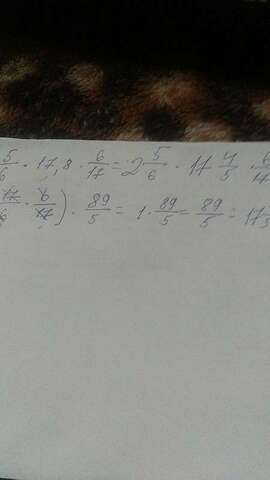 5/6 · 17,8 · 6/17 = 2 5/6 · 17 4/5 · 6/17
17/6 · 6/17) · 89/5 = 1 · 89/5 = 89/5 = 17